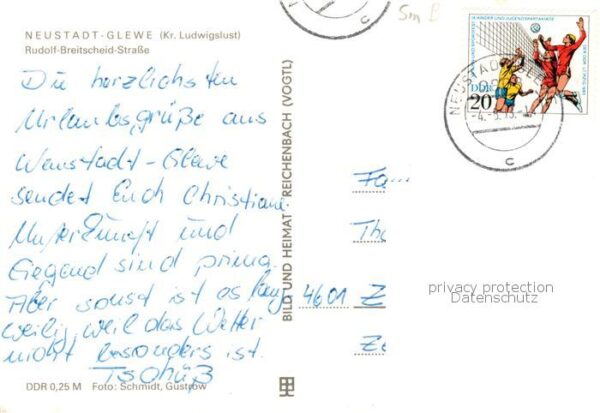 NEUSTADT-GLEWE (Kr. Ludwigslust)
Rudolf-Breitscheid-Straße
Die herzlichsten
Urlaubsgrüße aus
Neustadt-Glewe
sendet Euch Christiane.
Unterkunft und
Gegend sind prima.
Aber sonst ist es lang-
weilig, weil das Wetter
nicht besonders ist.
Tschüß
DDR 0,25 M Foto: Schmidt, Güstrow
BILD UND HEIMAT REICHENBACH (VOGTL)
DDR
20
c
c
Fa
Tho
4601 Z
privacy protection
Datenschutz